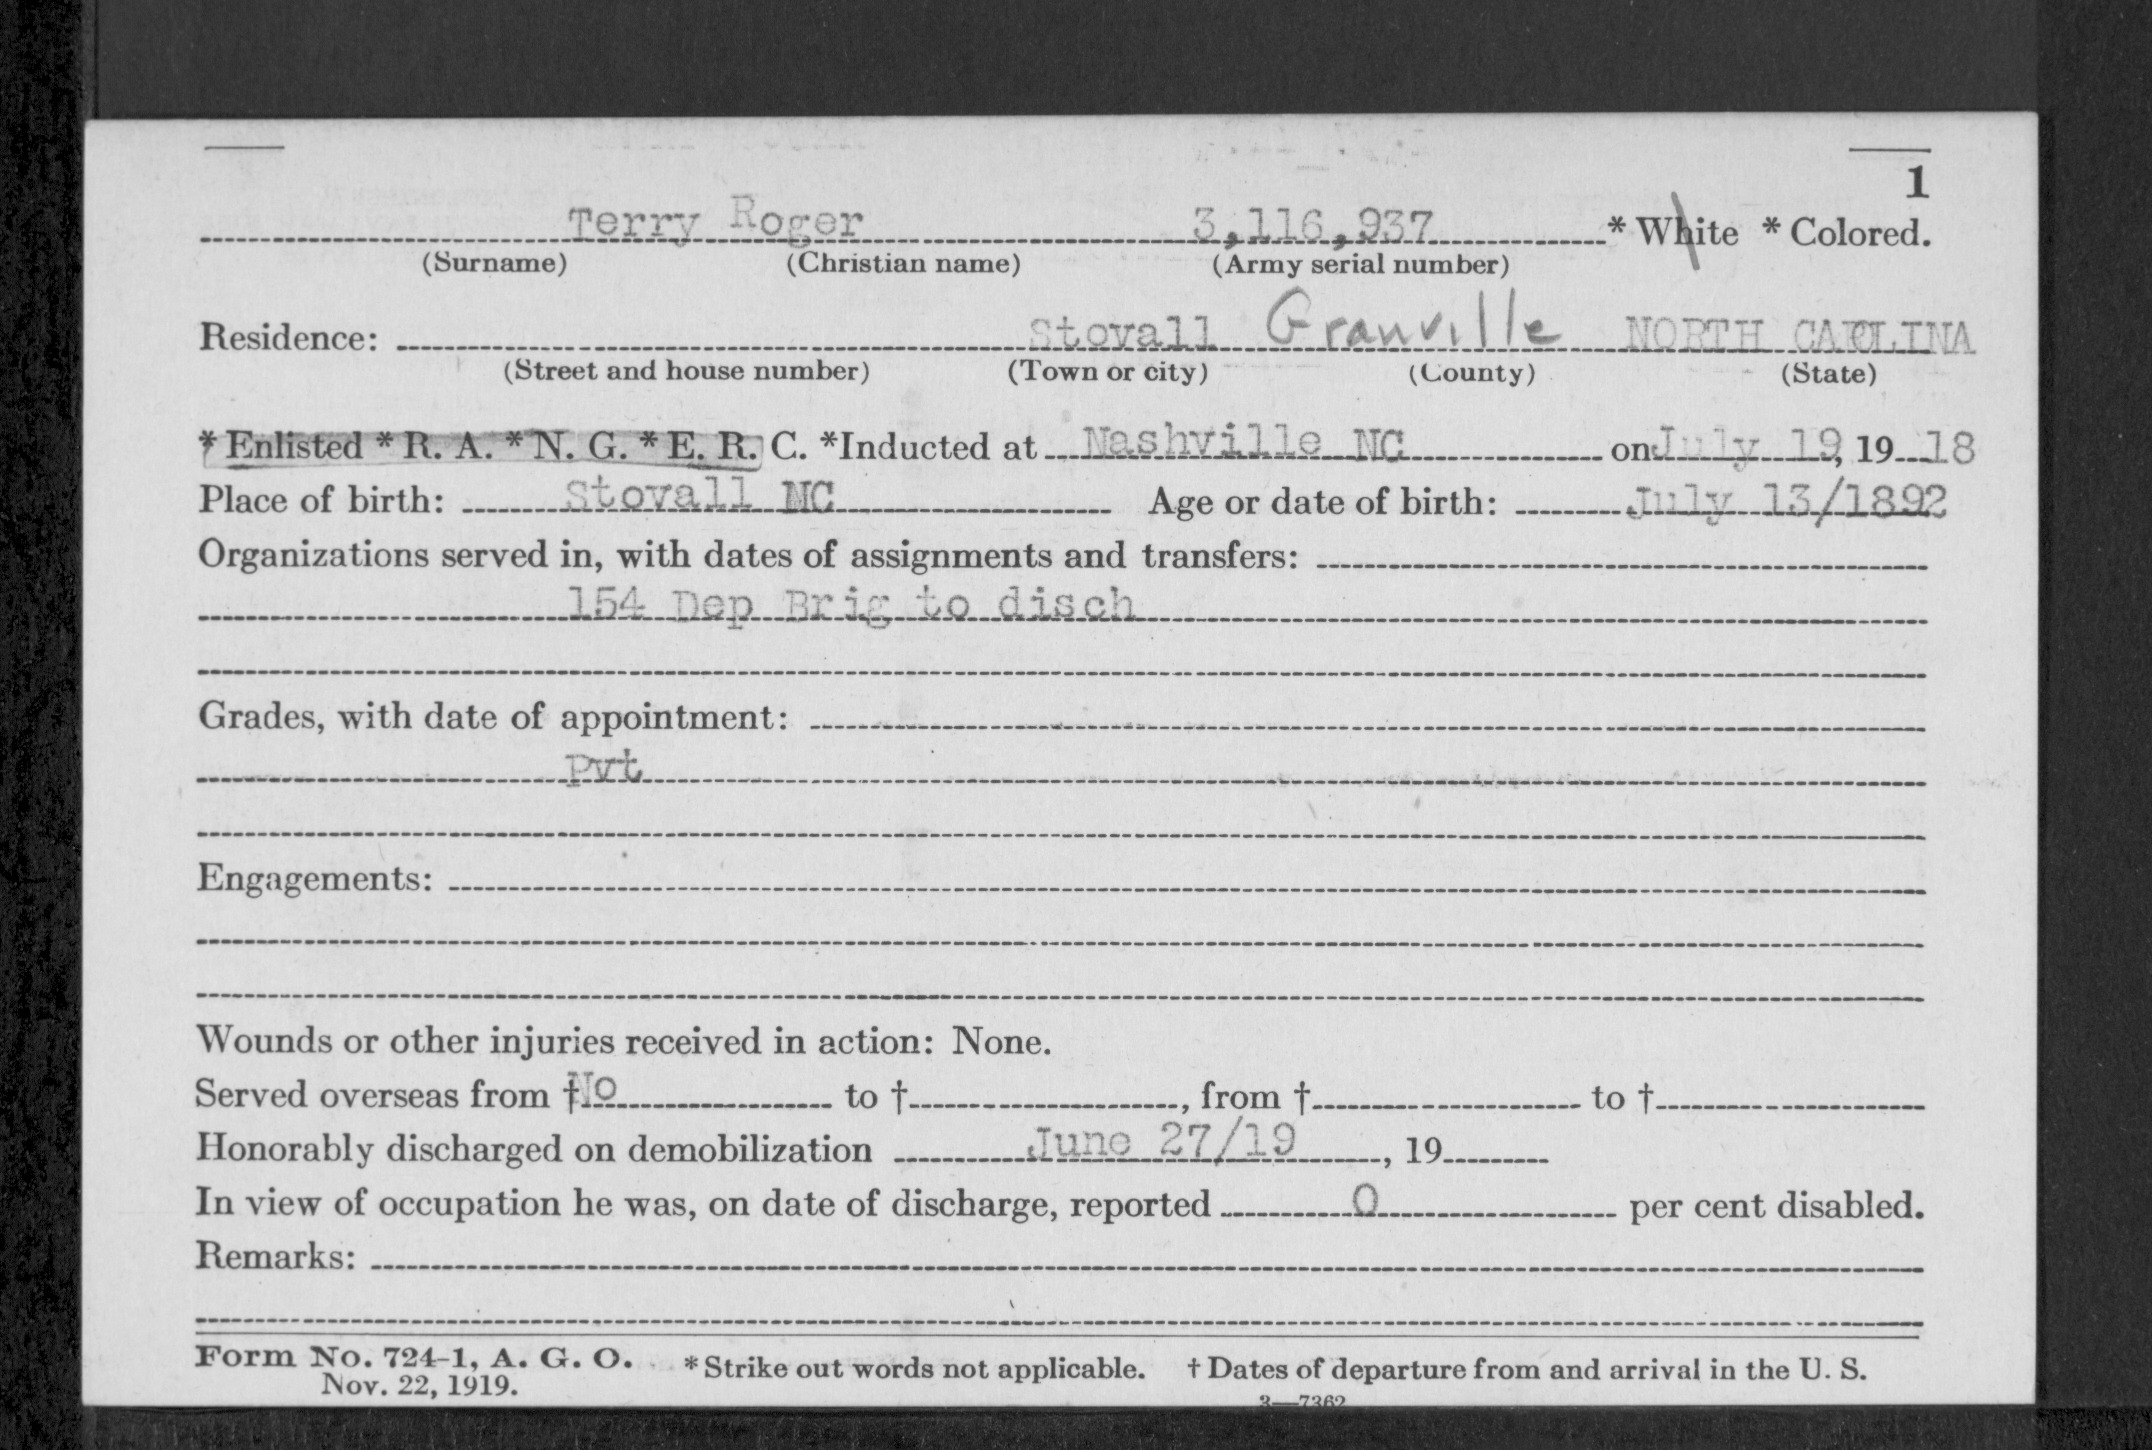 1
Terry Roger 3,116,937 * White * Colored.
(Surname) (Christian name) (Army serial number)
Residence: Stovall Granville NORTH CAROLINA
(Street and house number) (Town or city) (County) (State)
* Enlisted * R. A. * N. G. * E. R. C. *Inducted at Nashville NC on July 19, 19 18
Place of birth: Stovall NC Age or date of birth: July 13/1892
Organizations served in, with dates of assignments and transfers:
154 Dep Brig to disch
Grades, with date of appointment:
Pvt
Engagements:
Wounds or other injuries received in action: None.
Served overseas from † No to †, from † to †
Honorably discharged on demobilization June 27/19, 19
In view of occupation he was, on date of discharge, reported 0 per cent disabled.
Remarks:
Form No. 724-1, A. G. O. * Strike out words not applicable. † Dates of departure from and arrival in the U. S.
Nov. 22, 1919.
3—7362